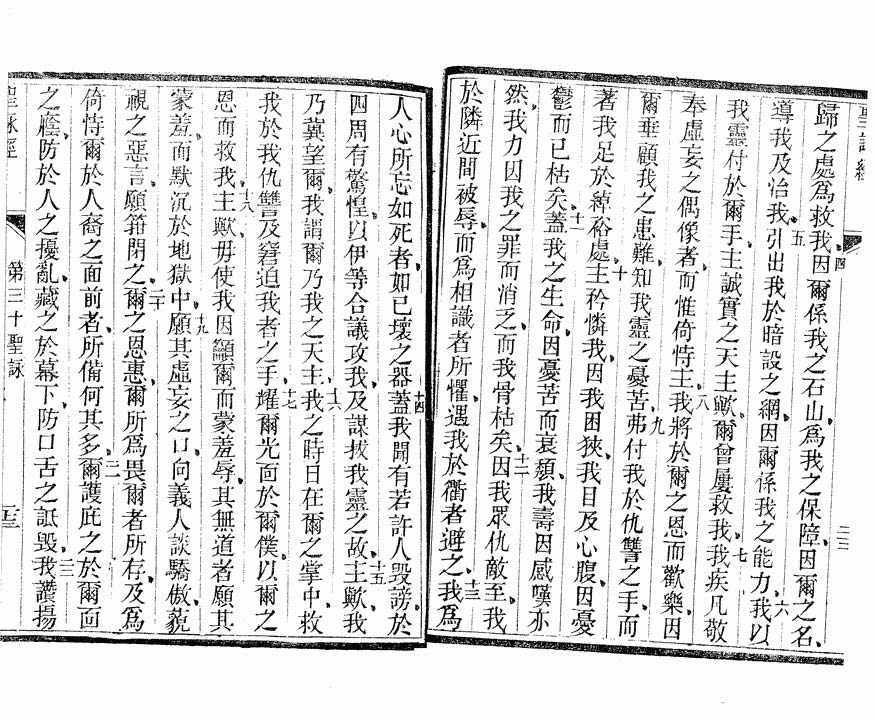 聖詠經
歸之處爲救我四因爾係我之石山爲我之保障因爾之名
導我及治我五引出我於暗設之網因爾係我之能力六我以
我靈付於爾手主誠實之天主歟爾曾屢救我七我疾凡敬
奉虛妄之偶像者而惟倚恃主八我將於爾之恩而歡樂因
爾垂顧我之患難知我靈之憂苦九弗付我於仇讐之手而
著我足於綽裕處十主矜憐我因我困狹我目及心腹因憂
鬱而已枯矣十一蓋我之生命因憂苦而衰頹我壽因感嘆亦
然我力因我之罪而消乏而我骨枯矣十二因我眾仇敵至我
於隣近間被辱而爲相識者所懼遇我於衢者避之十三我爲
人心所忘如死者如已壞之器十四蓋我聞有若許人毀謗於
四周有驚惶以伊等合議攻我及謀拔我靈之故十五主歟我
乃冀望爾我謂爾乃我之天主十六我之時日在爾之掌中救
我於我仇讐及窘迫我者之手十七燿爾光面於爾僕以爾之
恩而救我十八主歟毋使我因籲爾而蒙羞辱其無道者願其
蒙羞而默沉於地獄中十九願其虛妄之口向義人談驕傲藐
視之惡言願箝閉之二十爾之恩惠爾所爲畏爾者所存及爲
倚恃爾於人裔之面前者所備何其多二一爾護庇之於爾面
之廕防於人之擾亂藏之於幕下防口舌之詆毀二二我讚揚
聖詠經
第三十聖詠